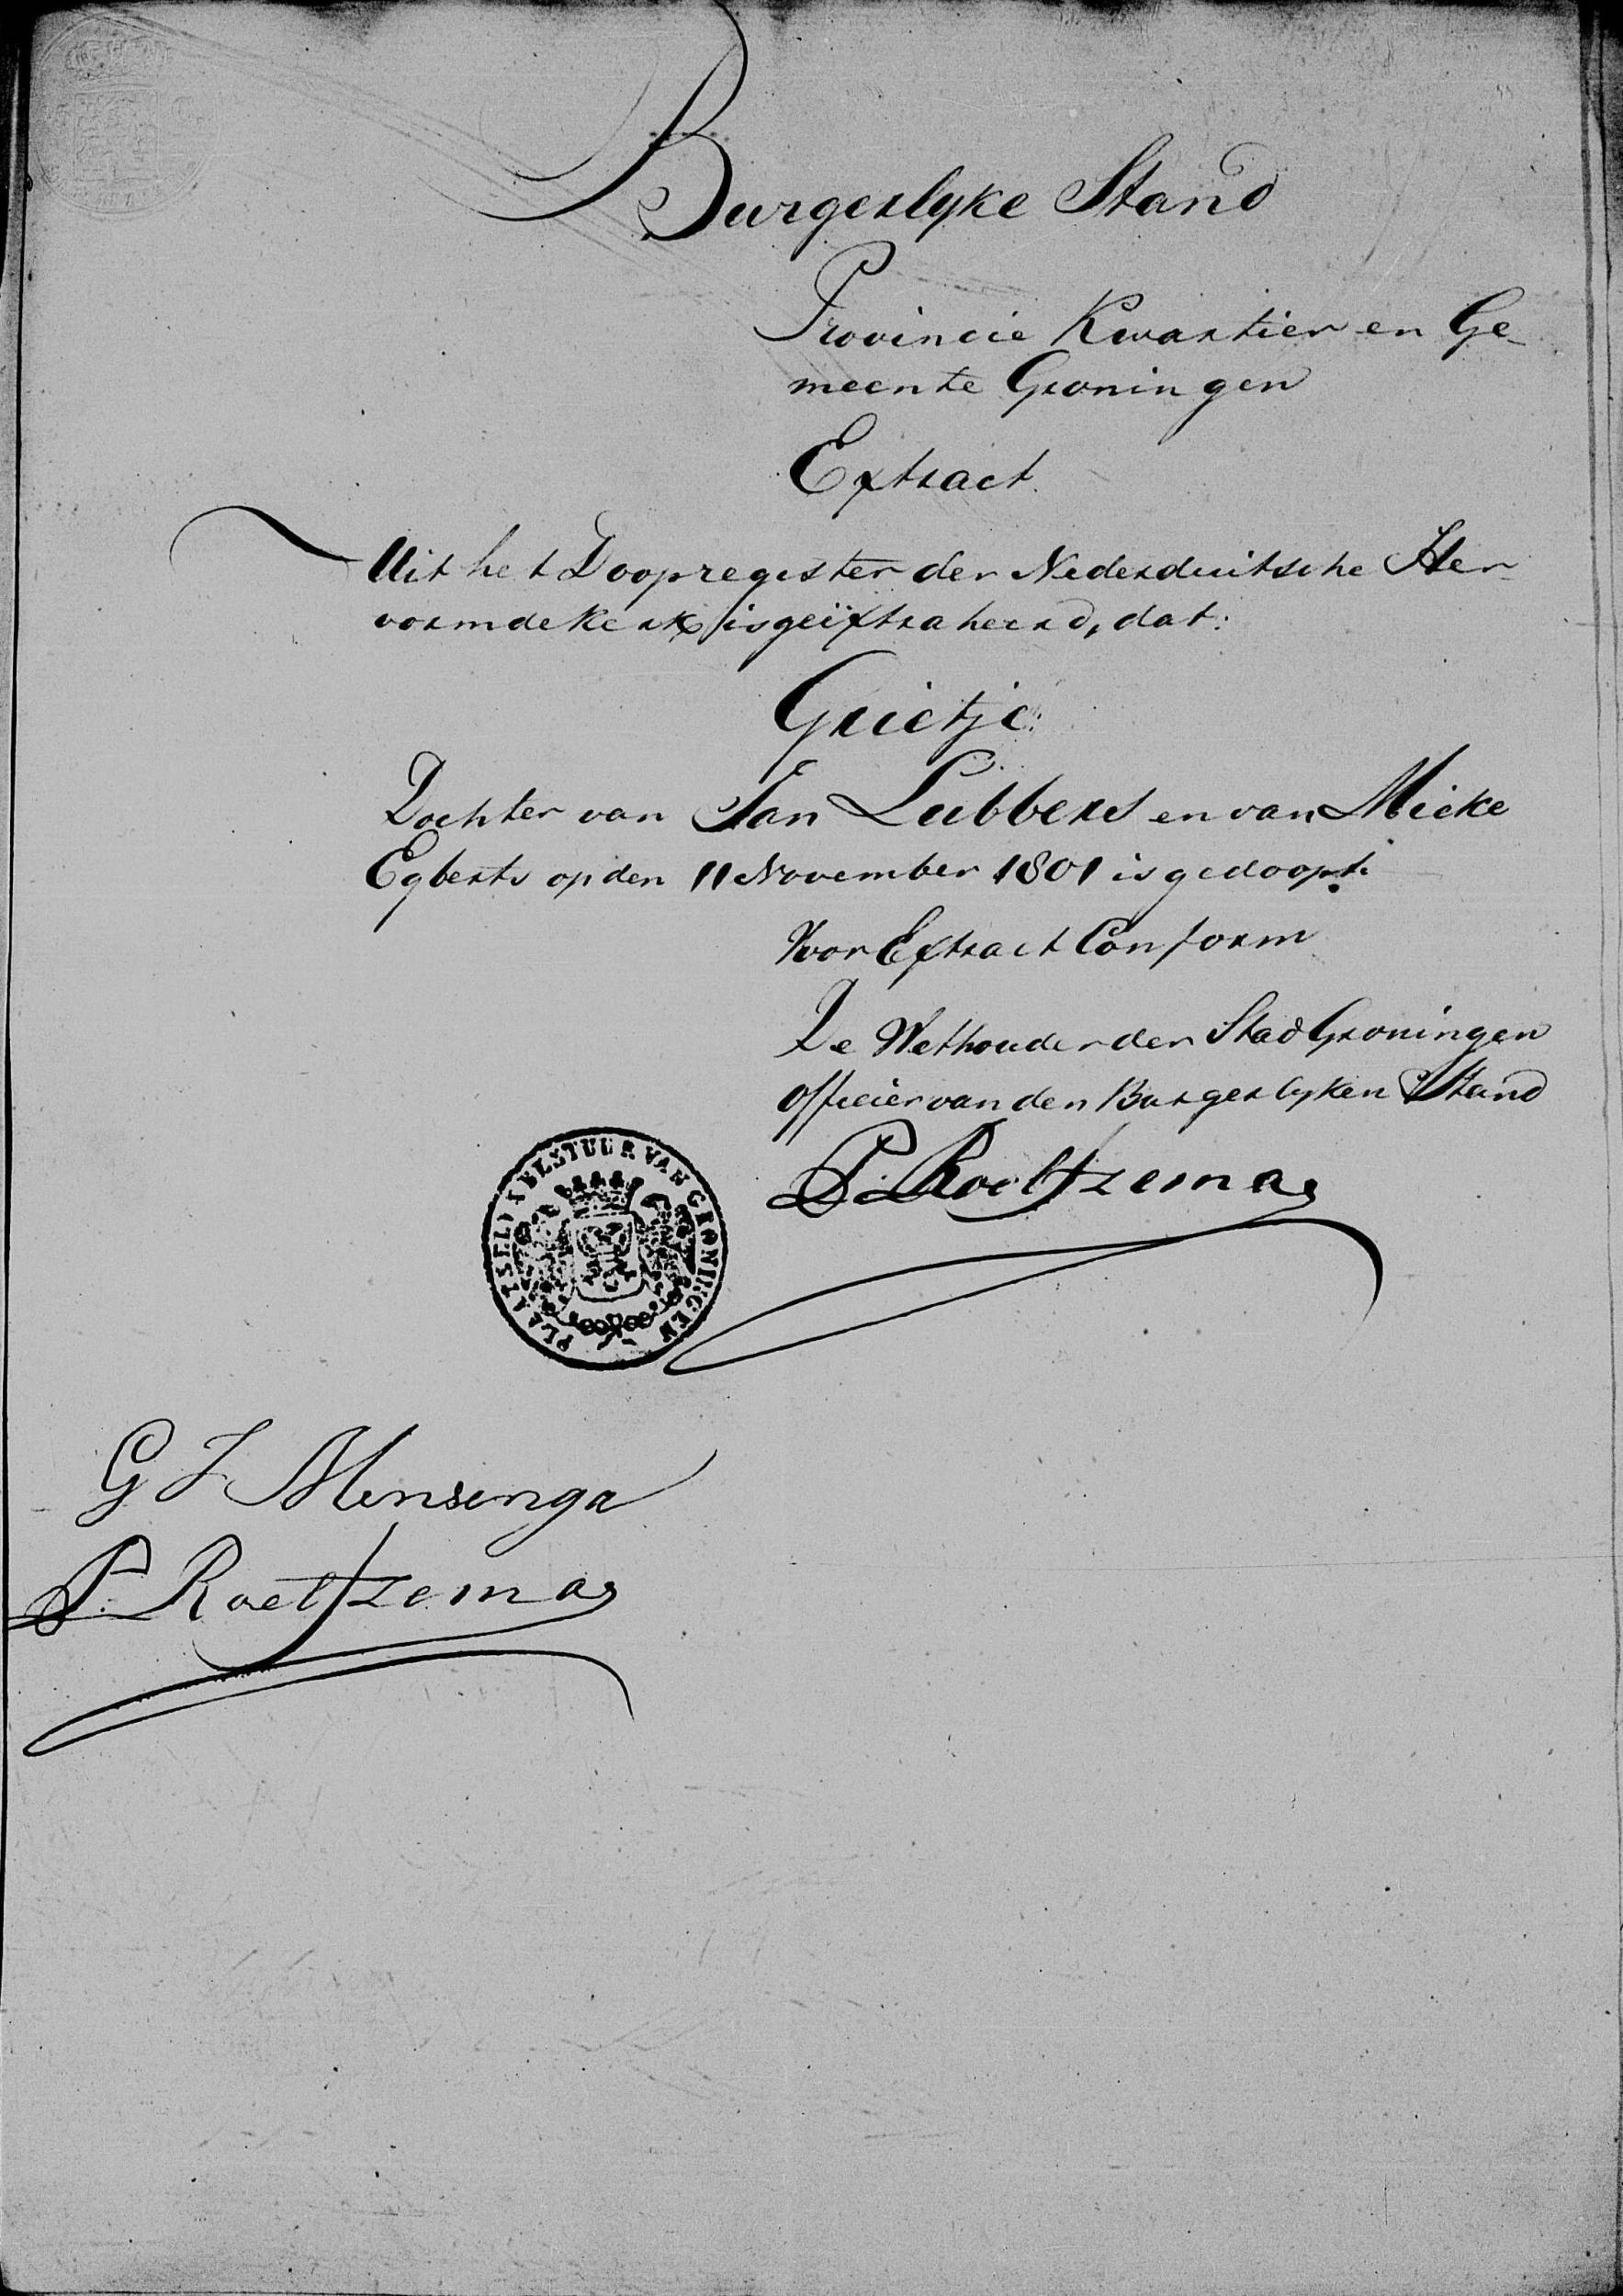 Burgerlyke Stand
Provincie Kwartier en Ge-
meente Groningen
Extract
Uit het Doopregister der Nederduitsche Her-
vormde Kerk is geëxtraheerd, dat:
Grietje
Dochter van Jan Lubbers en van Mieke
Egberts op den 11 November 1801 is gedoopt.
Voor Extract Conform
De Wethouder der Stad Groningen
Officier van den Burgerlyken Stand
P. Roeltzema
PLAATSELYK BESTUUR VAN GRONINGEN
G J Mensinga
P. Roeltzema